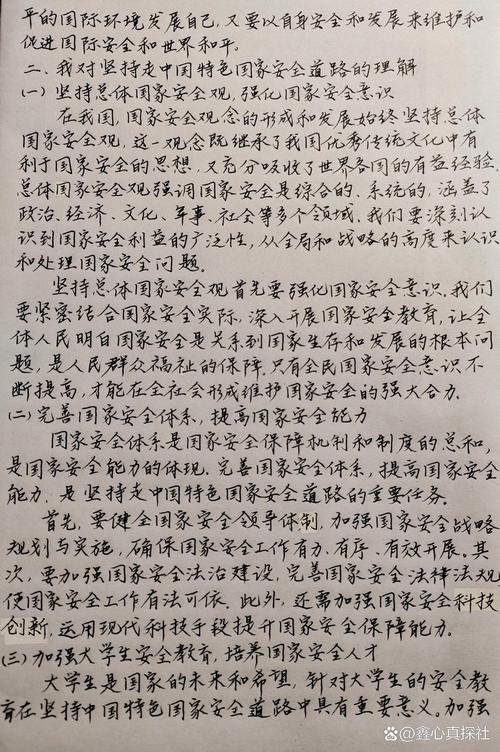 平的国际环境发展自己,又要以自身安全和发展来维护和
促进国际安全和世界和平。
二、我对坚持走中国特色国家安全道路的理解
(一)坚持总体国家安全观,强化国家安全意识
在我国,国家安全观念的形成和发展始终坚持总体
国家安全观,这一观念既继承了我国优秀传统文化中有
利于国家安全的思想,又充分吸收了世界各国的有益经验.
总体国家安全观强调国家安全是综合的、系统的,涵盖了
政治、经济、文化、军事、社会等多个领域.我们要深刻认
识到国家安全利益的广泛性,从全局和战略的高度来认识
和处理国家安全问题。
坚持总体国家安全观首先要强化国家安全意识.我们
要紧密结合国家安全实际,深入开展国家安全教育,让全
体人民明白国家安全是关系到国家生存和发展的根本问
题,是人民群众福祉的保障.只有全民国家安全意识不
断提高,才能在全社会形成维护国家安全的强大合力.
(二)完善国家安全体系,提高国家安全能力
国家安全体系是国家安全保障机制和制度的总和,
是国家安全能力的体现.完善国家安全体系,提高国家安全
能力.是坚持走中国特色国家安全道路的重要任务.
首先,要健全国家安全领导体制,加强国家安全战略
规划与实施,确保国家安全工作有力、有序、有效开展.其
次,要加强国家安全法治建设,完善国家安全法律法规
使国家安全工作有法可依.此外,还需加强国家安全科技
创新,运用现代科技手段提升国家安全保障能力.
(三)加强大学生安全教育,培养国家安全人才
大学生是国家的未来和希望,针对大学生的安全教
育在坚持中国特色国家安全道路中具有重要意义。加强
鑫心真探社